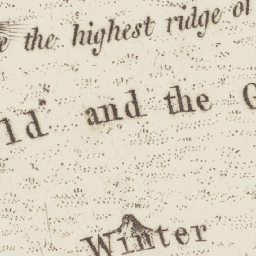 the highest ridge of
and the
Winter